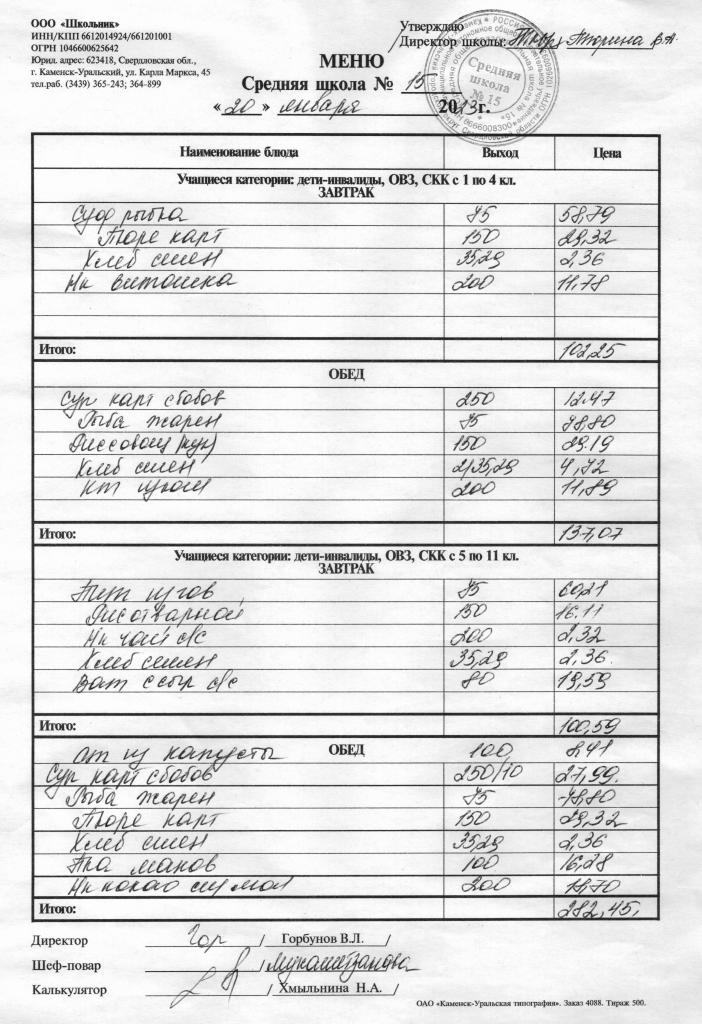 ООО «Школьник»
ИНН/КПП 6612014924/661201001
ОГРН 1046600625642
Юрид. адрес: 623418, Свердловская обл.,
г. Каменск-Уральский, ул. Карла Маркса, 45
тел.раб. (3439) 365-243; 364-899
Утверждаю
Директор школы:
Средняя школа № 15
МЕНЮ
Средняя школа № 15
«20» января 2013г.
Наименование блюда Выход Цена
Учащиеся категории: дети-инвалиды, ОВЗ, СКК с 1 по 4 кл.
ЗАВТРАК
Суф рыбка 75 58,79
Пюре карт 150 29,32
Хлеб смен 35,29 2,36
Нк витошка 200 11,78
Итого: 102,25
ОБЕД
Суп карт сбобов 250 12.47
Рыба жарен 75 78,80
150 29.19
Хлеб смен 2/35,29 4,72
200 11,89
Итого: 137,07
Учащиеся категории: дети-инвалиды, ОВЗ, СКК с 5 по 11 кл.
ЗАВТРАК
75 60,21
Рис отварной 150 16.11
Нк чай с/с 200 2,32
Хлеб смен 35,29 2,36.
Бат с сыр с/с 80 19,59
Итого: 100,59
ОБЕД
из капусты 100
Суп карт сбобов 250/10 27,99.
Рыба жарен 75 78,80
Пюре карт 150 29,32
Хлеб смен 35,29 2,36
маков 100 16,28
Нк какао 200
Итого: 282,45,
Директор / Горбунов В.Л. /
Шеф-повар /
Калькулятор / Хмыльнина Н.А. /
ОАО «Каменск-Уральская типография». Заказ 4088. Тираж 500.